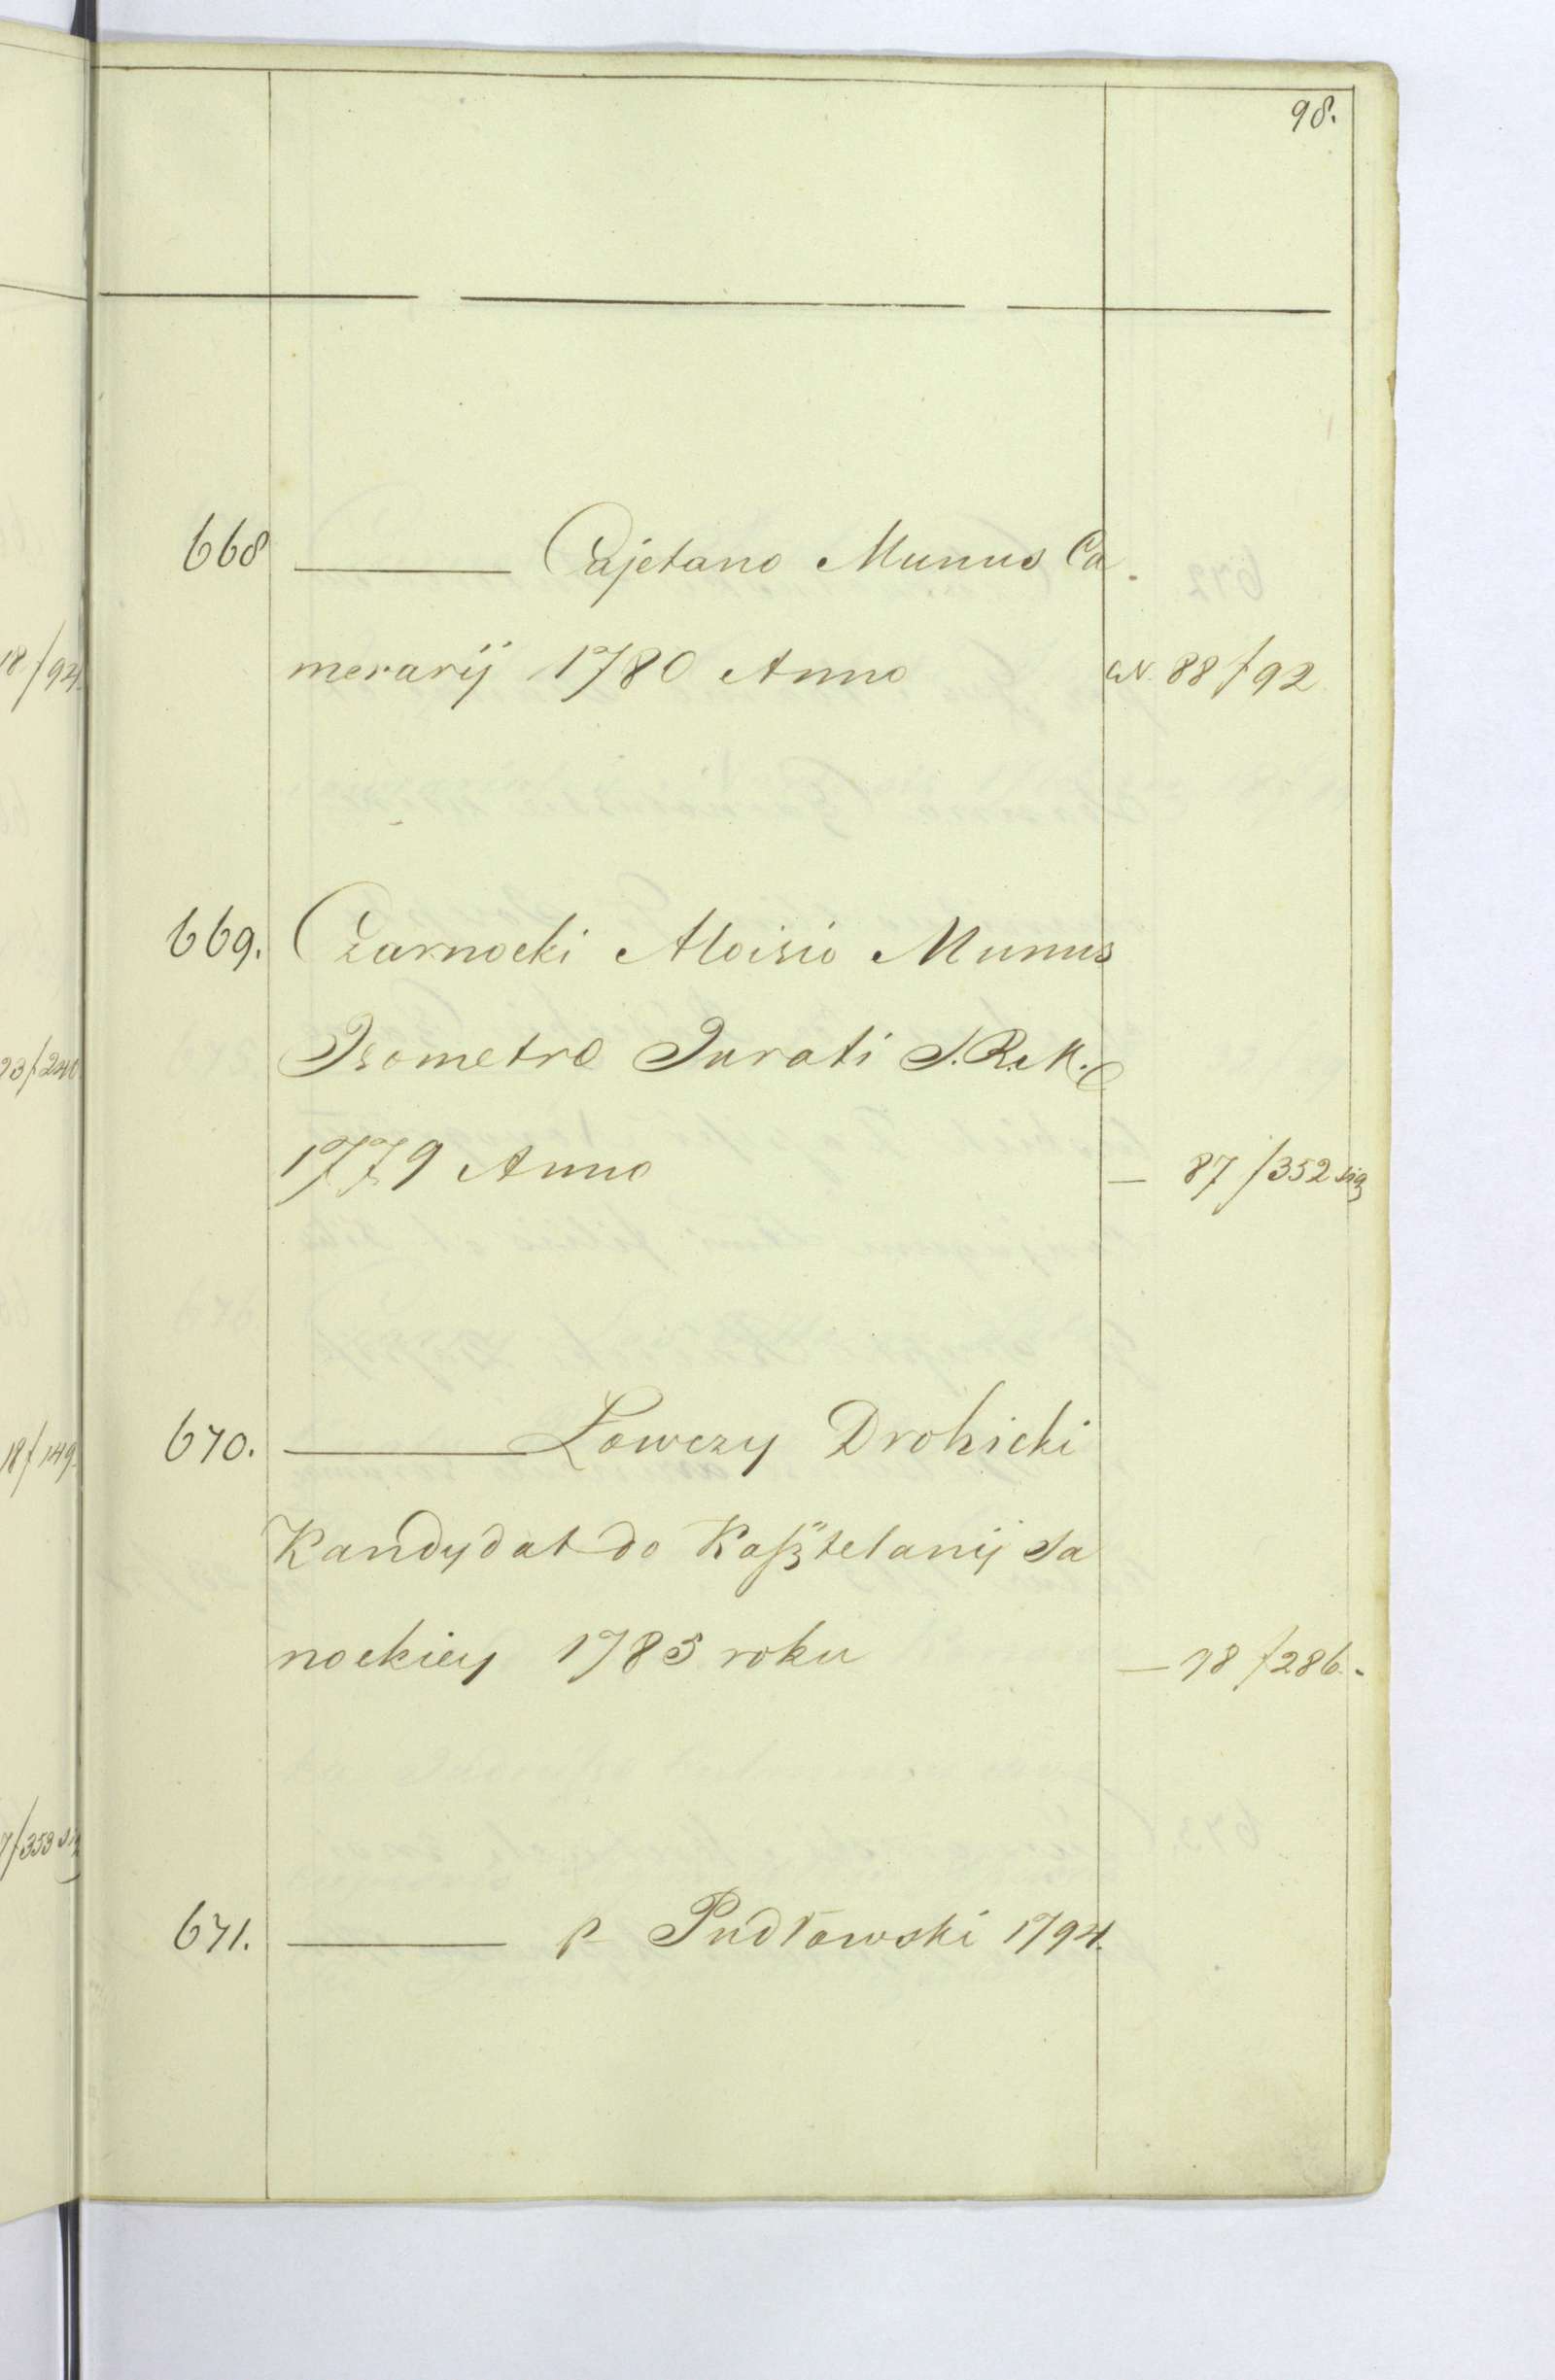 98.
668 ——— Cajetano Munus Ca-
merarij 1780 Anno W. 88 f 92
669. Czarnocki Aloisio Munus
Isometra Jurati S.R.M.
1779 Anno — 87 / 352
670. ——— Łowczy Drohicki
Kandydat do Kasztelanij Sa
nockiey 1785 roku — 98 f 286.
671. ——— p Pudłowski 1794.
18 f 94.
93 f 240
18 f 149.
7 / 353